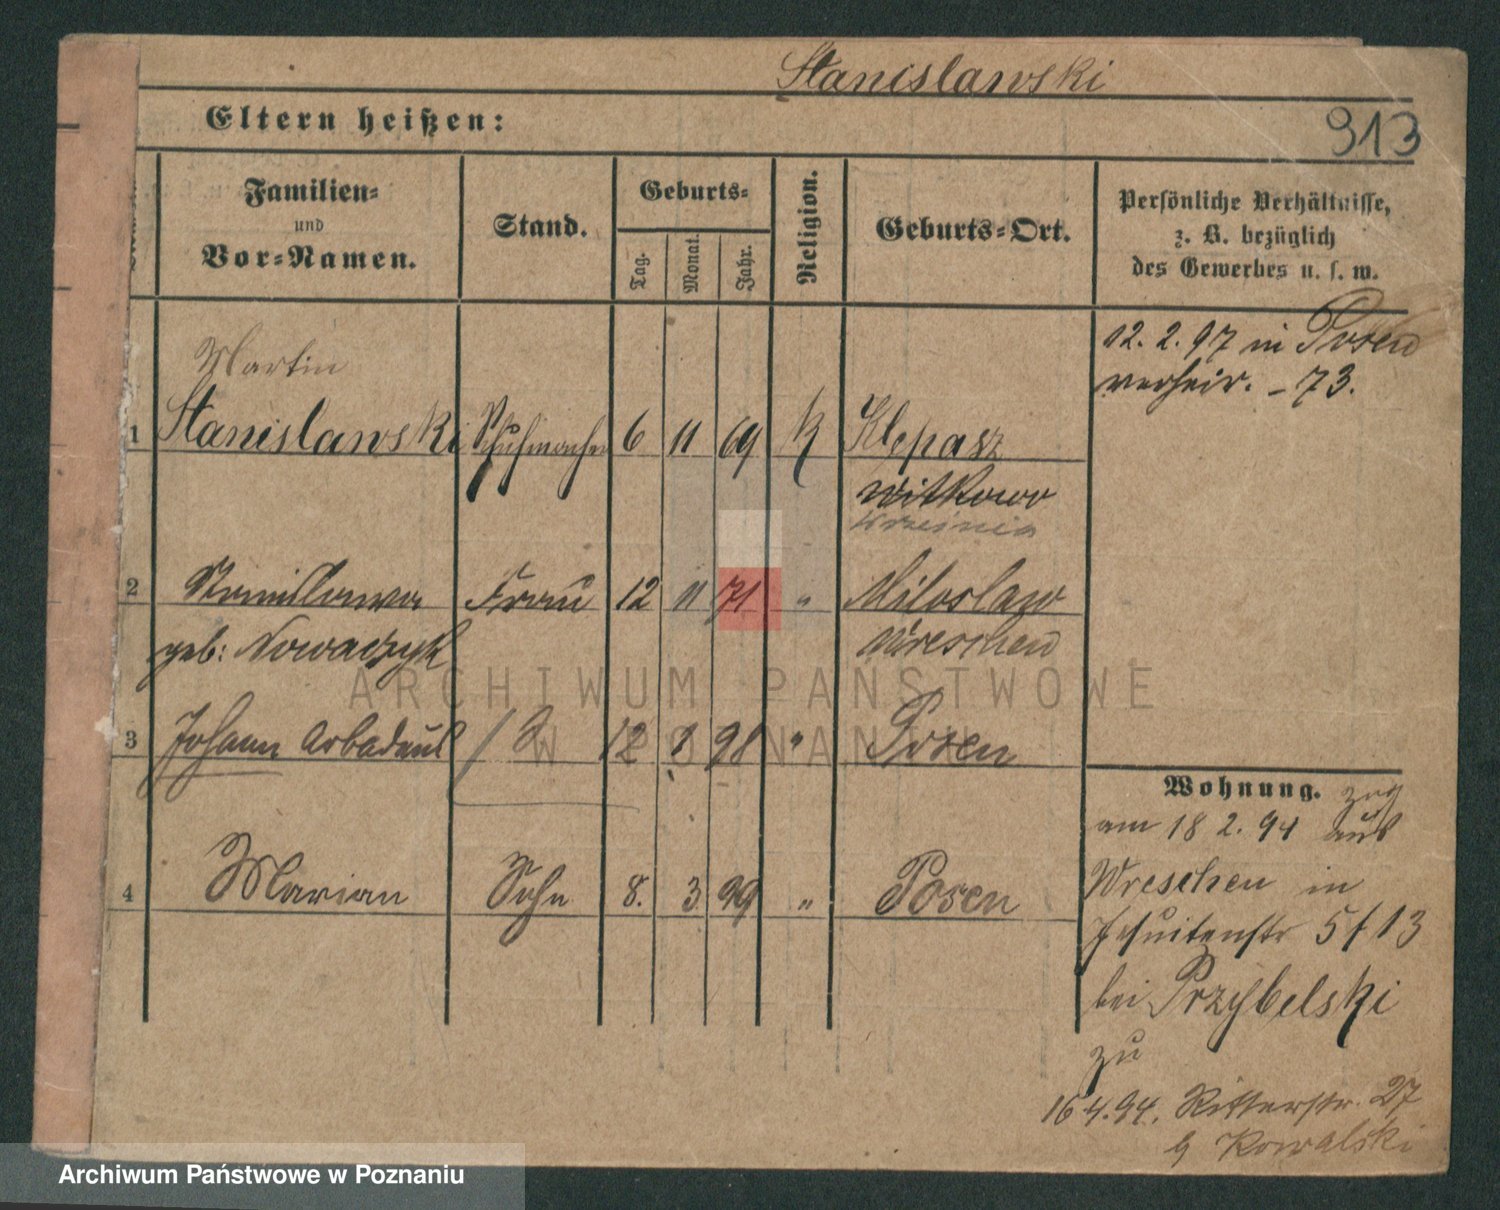 Stanislawski
Eltern heißen:
313
Familien=
und
Vor=Namen.
Stand.
Geburts=
Tag.
Monat.
Jahr.
Religion.
Geburts=Ort.
Persönliche Verhältnisse,
z. B. bezüglich
des Gewerbes u. s. w.
12. 2. 97 in Posen
verheir. - 73.
Martin
1 Stanislawski Schuhmacher 6 11 69 k Klepasz
Witkowo
2 Stanislawa Frau 12 11 71 " Miloslaw
geb: Nowaczyk Wreschen
3 Johann S 12 98 " Posen
4 Marian Sohn 8. 3 99 " Posen
Wohnung. zog
am 18 2. 94 aus
Wreschen in
Jesuitenstr 5/13
bei Przybelski
zu
16 4. 94. Ritterstr. 27
b Kowalski
ARCHIWUM PAŃSTWOWE
W POZNANIU
Archiwum Państwowe w Poznaniu